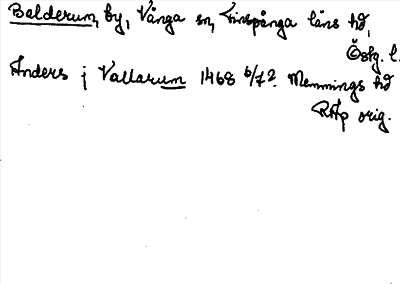 Balderum, by, Vånga sn, Finspånga läns hd,
Östg. l.
Anders j Vallarum 1468 6/7 2. Memmings hd
RAp orig.